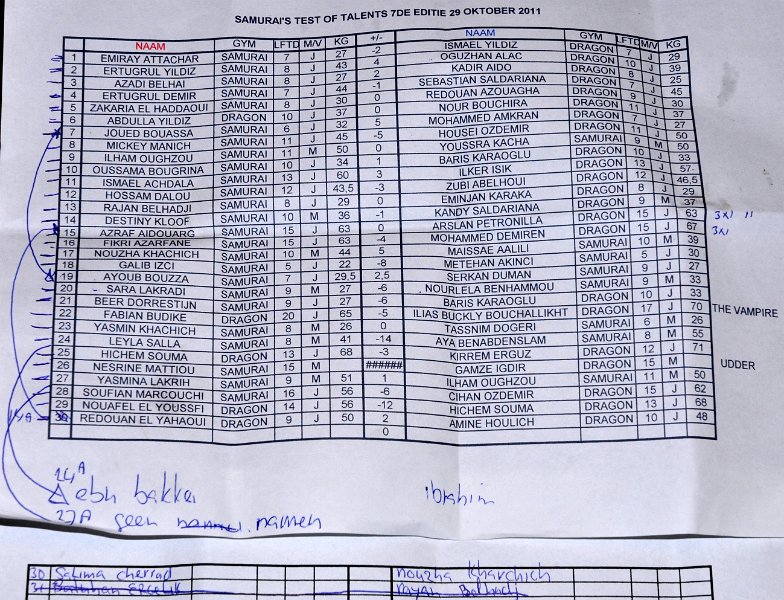 SAMURAI'S TEST OF TALENTS 7DE EDITIE 29 OKTOBER 2011
NAAM GYM LFTD M/V KG +/- NAAM GYM LFTD M/V KG
1 EMIRAY ATTACHAR SAMURAI 7 J 27 -2 ISMAEL YILDIZ DRAGON 7 J 29
2 ERTUGRUL YILDIZ SAMURAI 8 J 43 4 OGUZHAN ALAC DRAGON 10 J 39
3 AZADI BELHAI SAMURAI 8 J 27 2 KADIR AIDO DRAGON 8 J 25
4 ERTUGRUL DEMIR SAMURAI 7 J 44 -1 SEBASTIAN SALDARIANA DRAGON 7 J 45
5 ZAKARIA EL HADDAOUI SAMURAI 8 J 30 0 REDOUAN AZOUAGHA DRAGON 9 J 30
6 ABDULLA YILDIZ DRAGON 10 J 37 0 NOUR BOUCHIRA DRAGON 11 J 37
7 JOUED BOUASSA SAMURAI 6 J 32 5 MOHAMMED AMKRAN DRAGON 7 J 27
8 MICKEY MANICH SAMURAI 11 J 45 -5 HOUSEI OZDEMIR DRAGON 11 J 50
9 ILHAM OUGHZOU SAMURAI 11 M 50 0 YOUSSRA KACHA SAMURAI 9 M 50
10 OUSSAMA BOUGRINA SAMURAI 10 J 34 1 BARIS KARAOGLU DRAGON 10 J 33
11 ISMAEL ACHDALA SAMURAI 13 J 60 3 ILKER ISIK DRAGON 13 J 57
12 HOSSAM DALOU SAMURAI 12 J 43,5 -3 ZUBI ABELHOUI DRAGON 12 J 46,5
13 RAJAN BELHADJI SAMURAI 8 J 29 0 EMINJAN KARAKA DRAGON 8 J 29
14 DESTINY KLOOF SAMURAI 10 M 36 -1 KANDY SALDARIANA DRAGON 9 M 37
15 AZRAF AIDOUARG SAMURAI 15 J 63 0 ARSLAN PETRONILLA DRAGON 15 J 63 3x1 "
16 FIKRI AZARFANE SAMURAI 15 J 63 -4 MOHAMMED DEMIREN DRAGON 15 J 67 3x1
17 NOUZHA KHACHICH SAMURAI 10 M 44 5 MAISSAE AALILI SAMURAI 10 M 39
18 GALIB IZCI SAMURAI 5 J 22 -8 METEHAN AKINCI SAMURAI 5 J 30
19 AYOUB BOUZZA SAMURAI 7 J 29,5 2,5 SERKAN DUMAN SAMURAI 9 J 27
20 SARA LAKRADI SAMURAI 9 M 27 -6 NOURLELA BENHAMMOU SAMURAI 9 M 33
21 BEER DORRESTIJN SAMURAI 9 J 27 -6 BARIS KARAOGLU DRAGON 10 J 33
22 FABIAN BUDIKE DRAGON 20 J 65 -5 ILIAS BUCKLY BOUCHALLIKHT DRAGON 17 J 70 THE VAMPIRE
23 YASMIN KHACHICH SAMURAI 8 M 26 0 TASSNIM DOGERI SAMURAI 6 M 26
24 LEYLA SALLA SAMURAI 8 M 41 -14 AYA BENABDENSLAM SAMURAI 8 M 55
25 HICHEM SOUMA DRAGON 13 J 68 -3 KIRREM ERGUZ DRAGON 12 J 71
26 NESRINE MATTIOU SAMURAI 15 M ###### GAMZE IGDIR DRAGON 15 M UDDER
27 YASMINA LAKRIH SAMURAI 9 M 51 1 ILHAM OUGHZOU SAMURAI 11 M 50
28 SOUFIAN MARCOUCHI SAMURAI 16 J 56 -6 CIHAN OZDEMIR DRAGON 15 J 62
29 NOUAFEL EL YOUSSFI DRAGON 14 J 56 -12 HICHEM SOUMA DRAGON 13 J 68
14A 30 REDOUAN EL YAHAOUI DRAGON 9 J 50 2 AMINE HOULICH DRAGON 10 J 48
0
24A
ebn bakker ibrahim
27A geen namen
30 Salima cherrad nouzha Kharchich
31